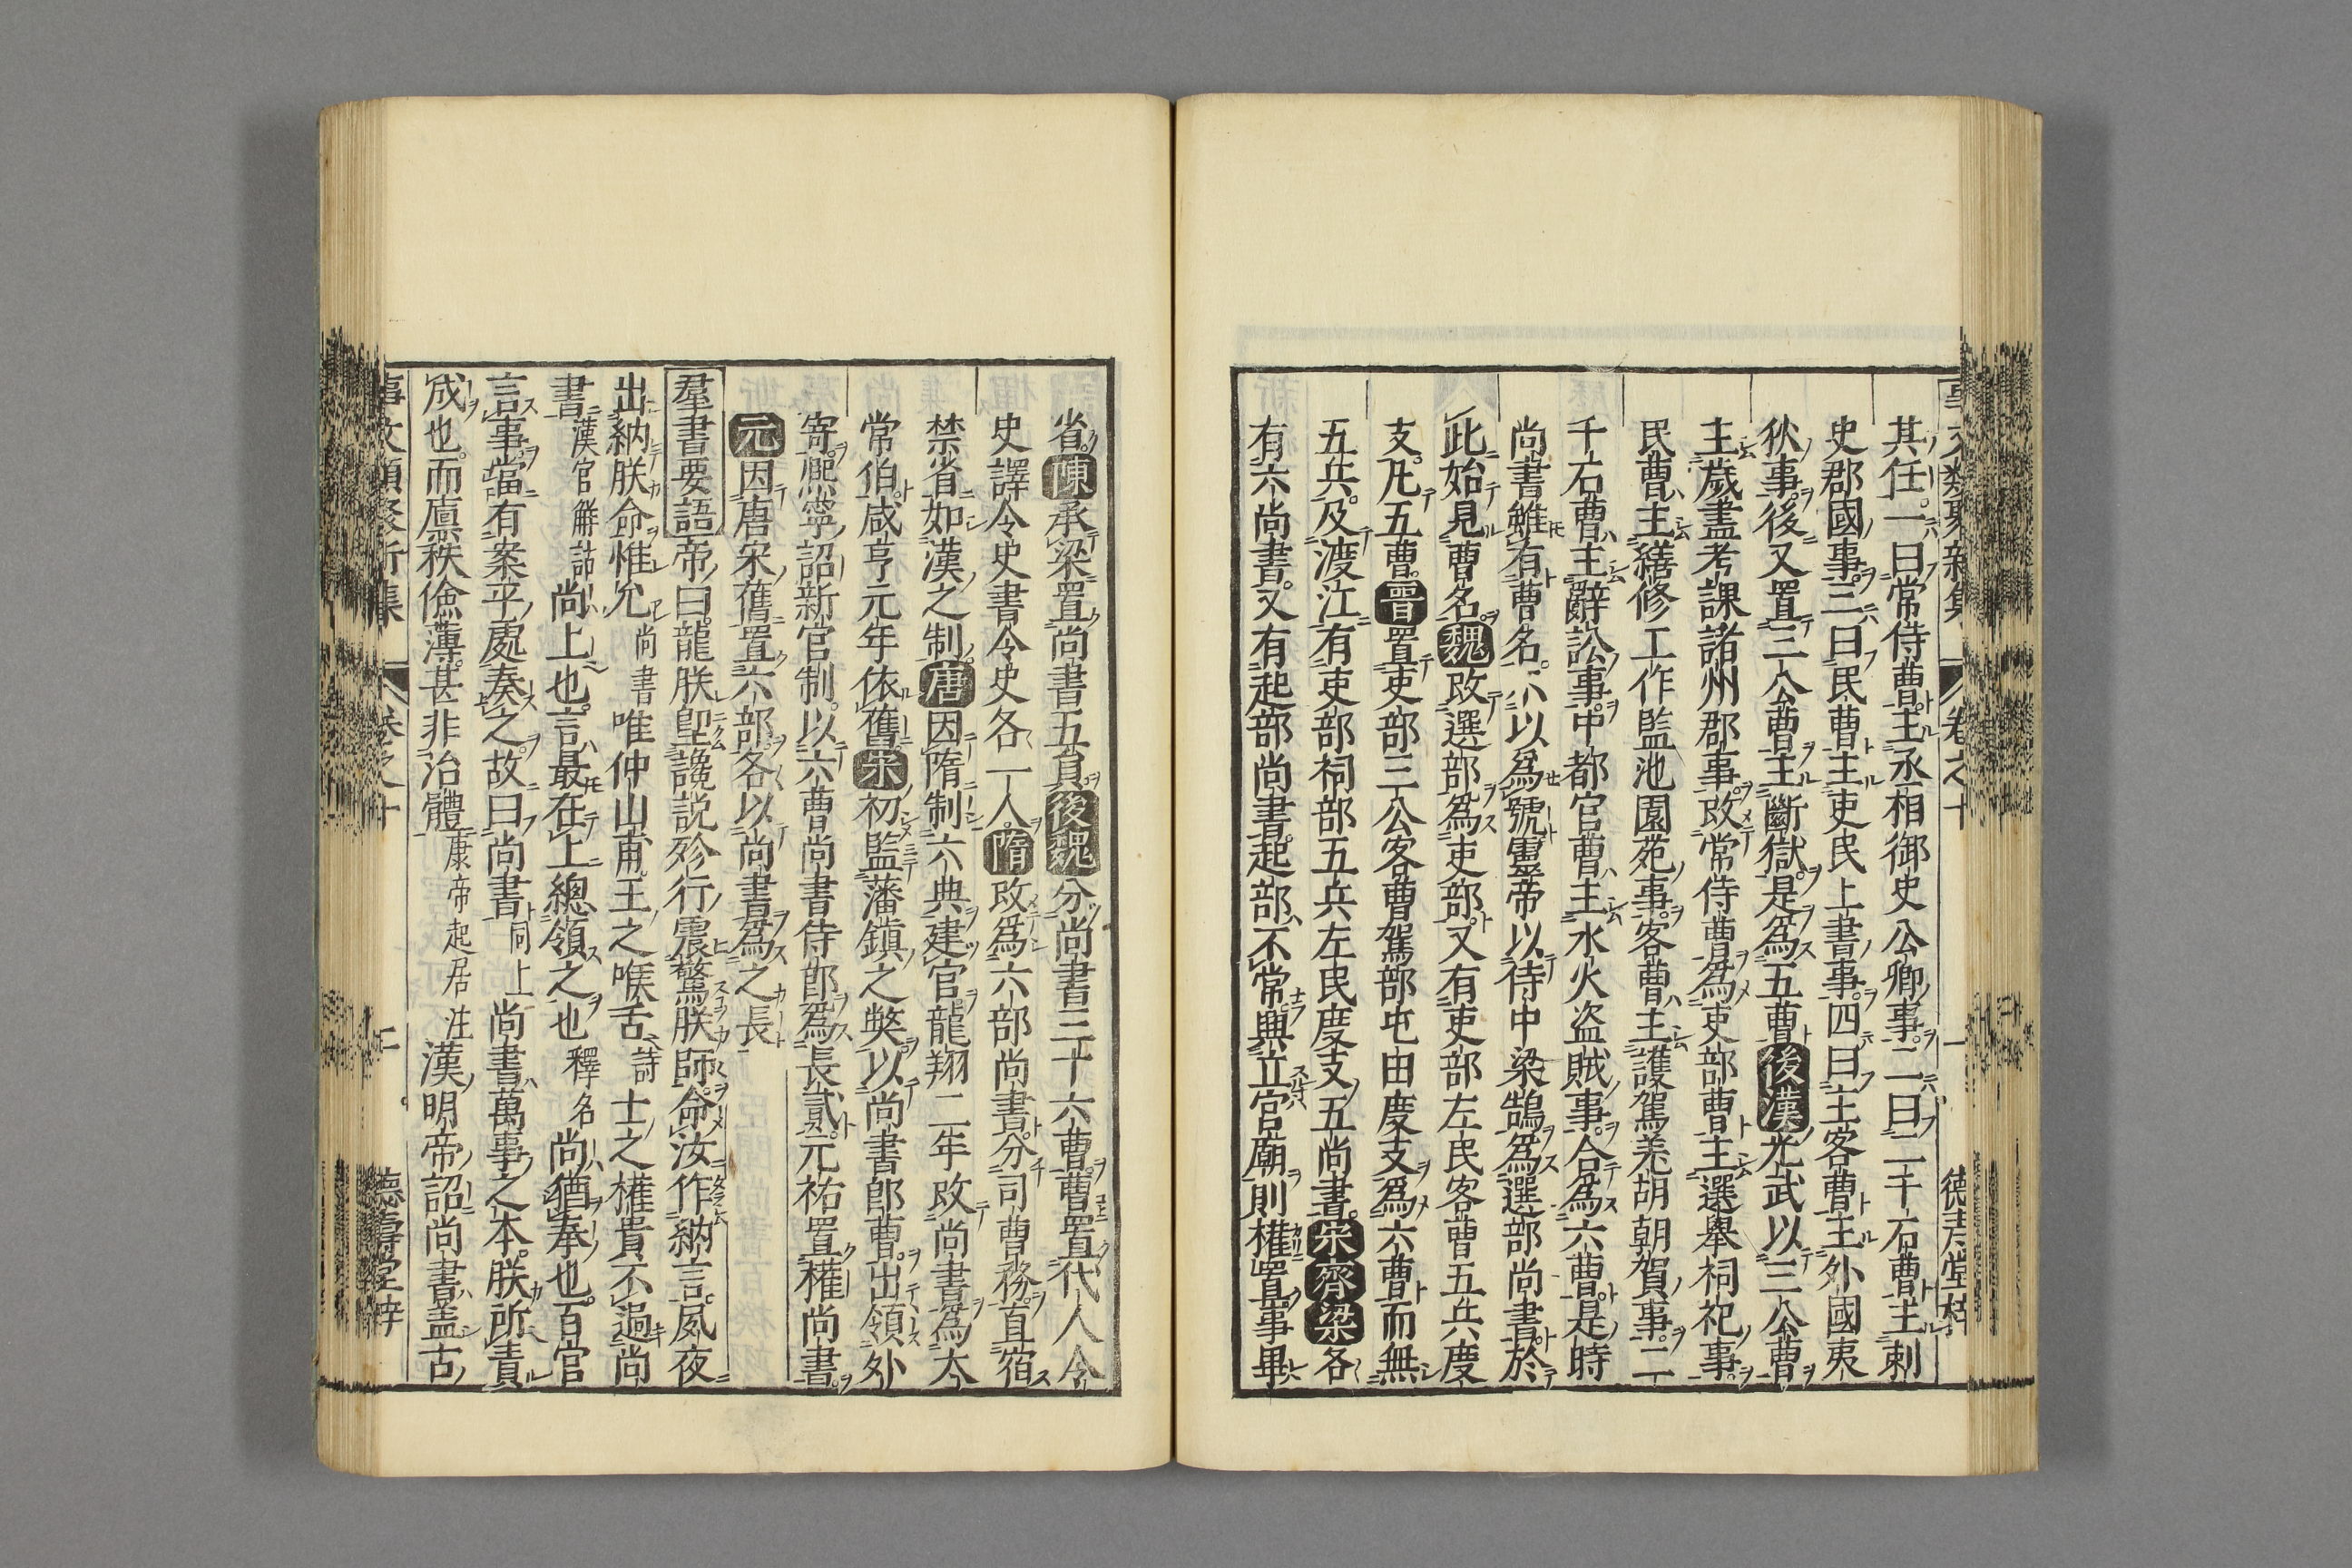 其任一曰常侍曹主丞相御史公卿事二曰二千石曹主刺
史郡國事三曰民曹主吏民上書事四曰主客曹主外國夷
狄事後又置三公曹主斷獄是爲五曹後漢光武以三公曹
主歲盡考課諸州郡事改常侍曹爲吏部曹主選舉祠祀事
民曹主繕修工作監池園苑事客曹主護駕羌胡朝賀事二
千石曹主辭訟事中都官曹主水火盗賊事合爲六曹是時
尚書雖有曹名不以爲號靈帝以侍中梁鵠爲選部尚書於
此始見曹名魏改選部爲吏部又有吏部左民客曹五兵度
支凡五曹晉置吏部三公客曹駕部屯田度支爲六曹而無
五兵及渡江有吏部祠部五兵左民度支五尚書宋齊梁各
有六尚書又有起部尚書起部不常與立宮廟則權置事畢
省陳承梁置尚書五員後魏分尚書三十六曹曹置代人令
史譯令史書令史各一人隋改爲六部尚書分司曹務直宿
禁省如漢之制唐因隋制六典建官龍翔二年改尚書爲太
常伯咸亨元年依舊宋初監藩鎮之弊以尚書郎曹出領外
寄熙寧詔新官制以六曹尚書侍郎爲長貳元祐置權尚書
元因唐宋舊置六部各以尚書爲之長
羣書要語帝曰龍朕堲讒說殄行震驚朕師命汝作納言夙夜
出納朕命惟允尚書唯仲山甫王之喉舌詩士之權貴不過尚
書漢官解詁尚上也言最在上總領之也釋名尚猶奉也百官
言事當有案平處奏之故曰尚書同上尚書萬事之本朕所責
成也而廪秩儉薄甚非治體康帝起居注漢明帝詔尚書蓋古